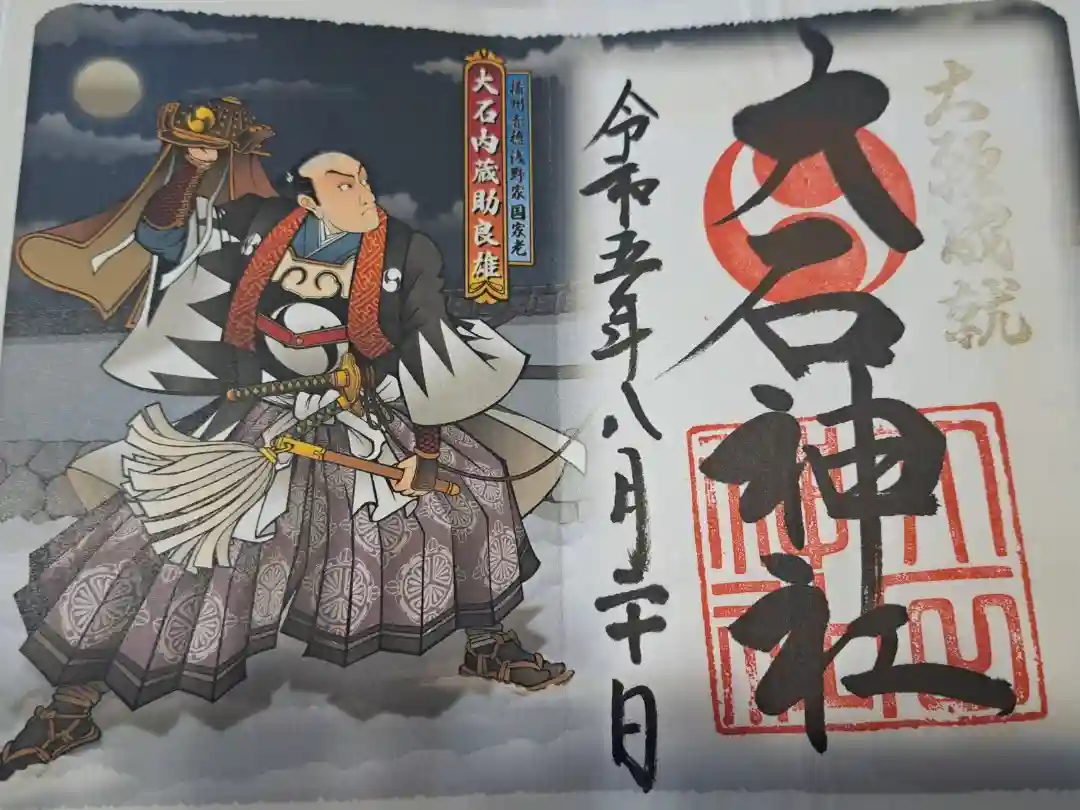 大願成就
大石神社
令和五年八月二十日
播州赤穂浅野家国家老
大石内蔵助良雄